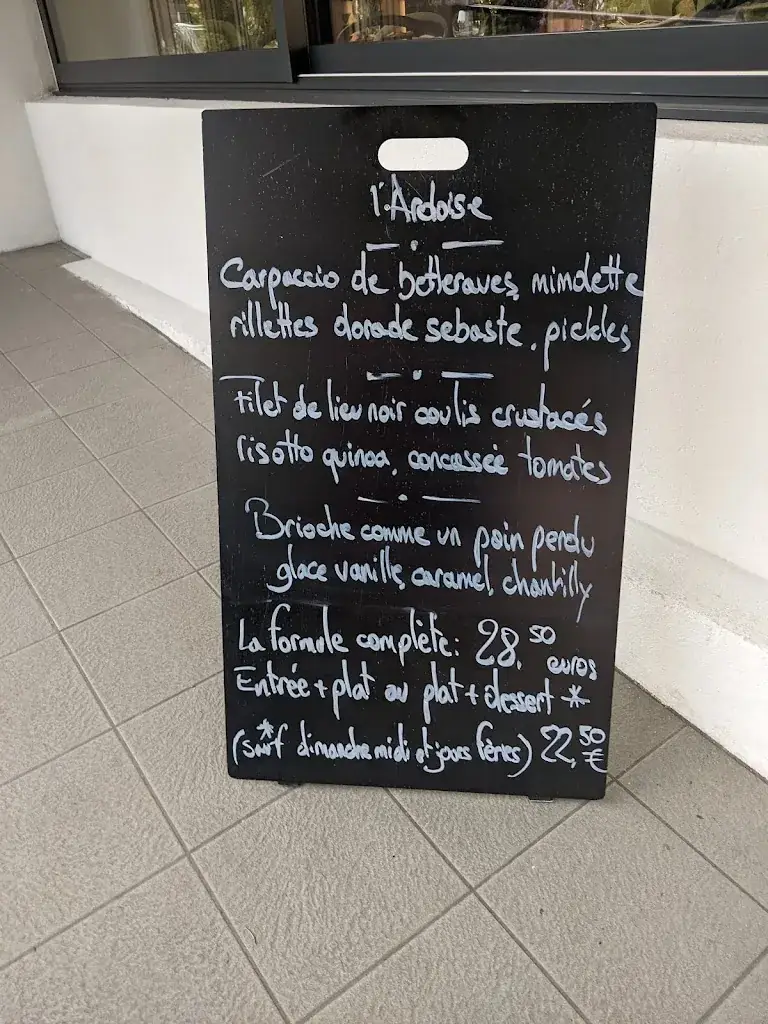 l'Ardoise
Carpaccio de betteraves, mimolette
rillettes dorade sebaste, pickles
Filet de lieu noir coulis crustacés
risotto quinoa, concassée tomates
Brioche comme un pain perdu
glace vanille, caramel, chantilly
La formule complète: 28,50 euros
Entrée + plat ou plat + dessert *
(*sauf dimanche midi et jours fériés) 22,50 €